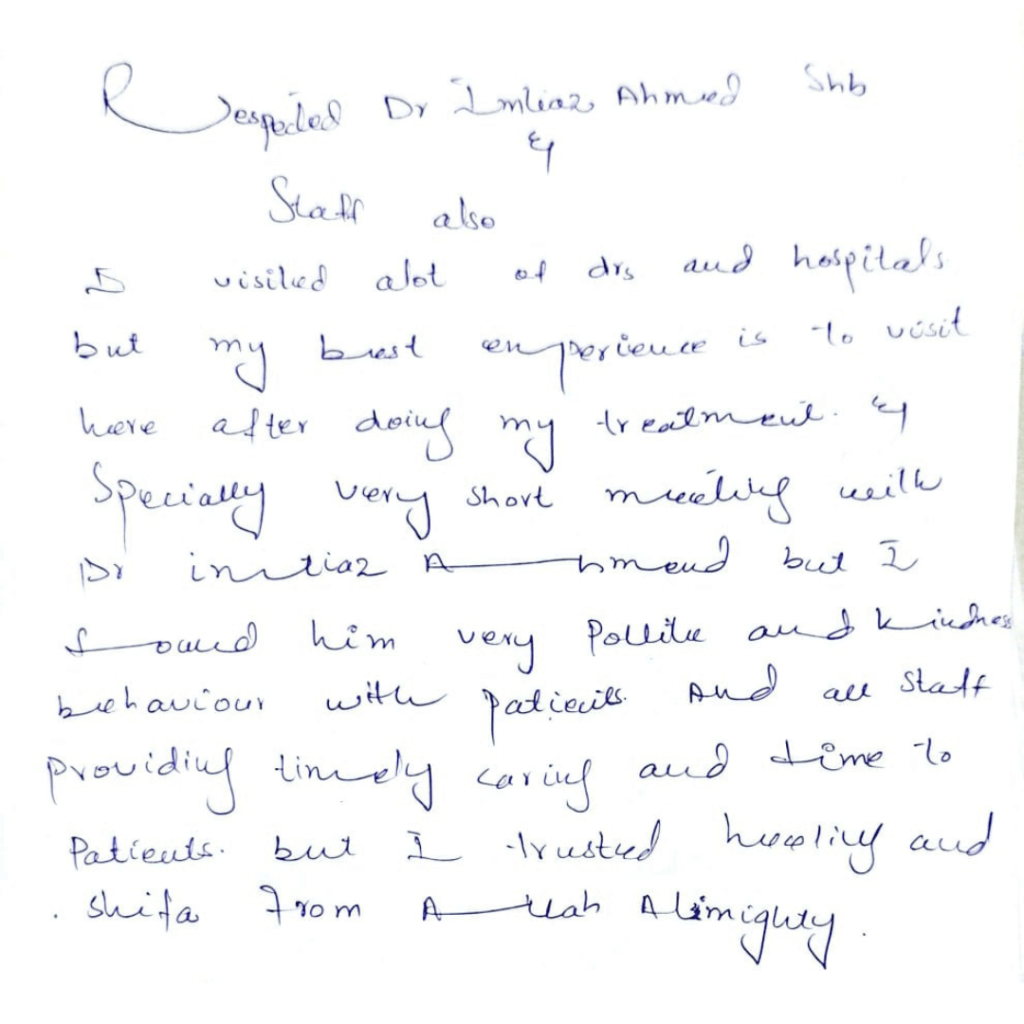 Respected Dr Imtiaz Ahmed Shb
&
Staff also
I visited alot of drs and hospitals
but my best experience is to visit
here after doing my treatment. &
Specially very short meeting with
Dr imtiaz Ahmend but I
found him very Pollite and kindness
behaviour with patients. And all staff
providing timely caring and time to
Patients. but I trusted healing and
. shifa from Allah Almighty.